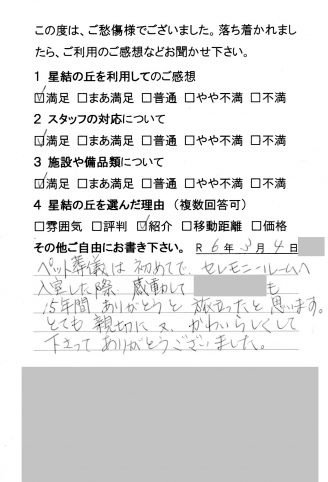 この度は、ご愁傷様でございました。落ち着かれまし
たら、ご利用のご感想などお聞かせ下さい。
1 星結の丘を利用してのご感想
☑満足 □まあ満足 □普通 □やや不満 □不満
2 スタッフの対応について
☑満足 □まあ満足 □普通 □やや不満 □不満
3 施設や備品類について
☑満足 □まあ満足 □普通 □やや不満 □不満
4 星結の丘を選んだ理由（複数回答可）
□雰囲気 □評判 ☑紹介 □移動距離 □価格
その他ご自由にお書き下さい。 R 6年 3月 4日
ペット葬儀は初めてで、セレモニールームへ
入室した際 感動して も
15年間 ありがとうと 旅立ったと思います。
とても 親切に 又、かわいらしくして
下さって ありがとうございました。